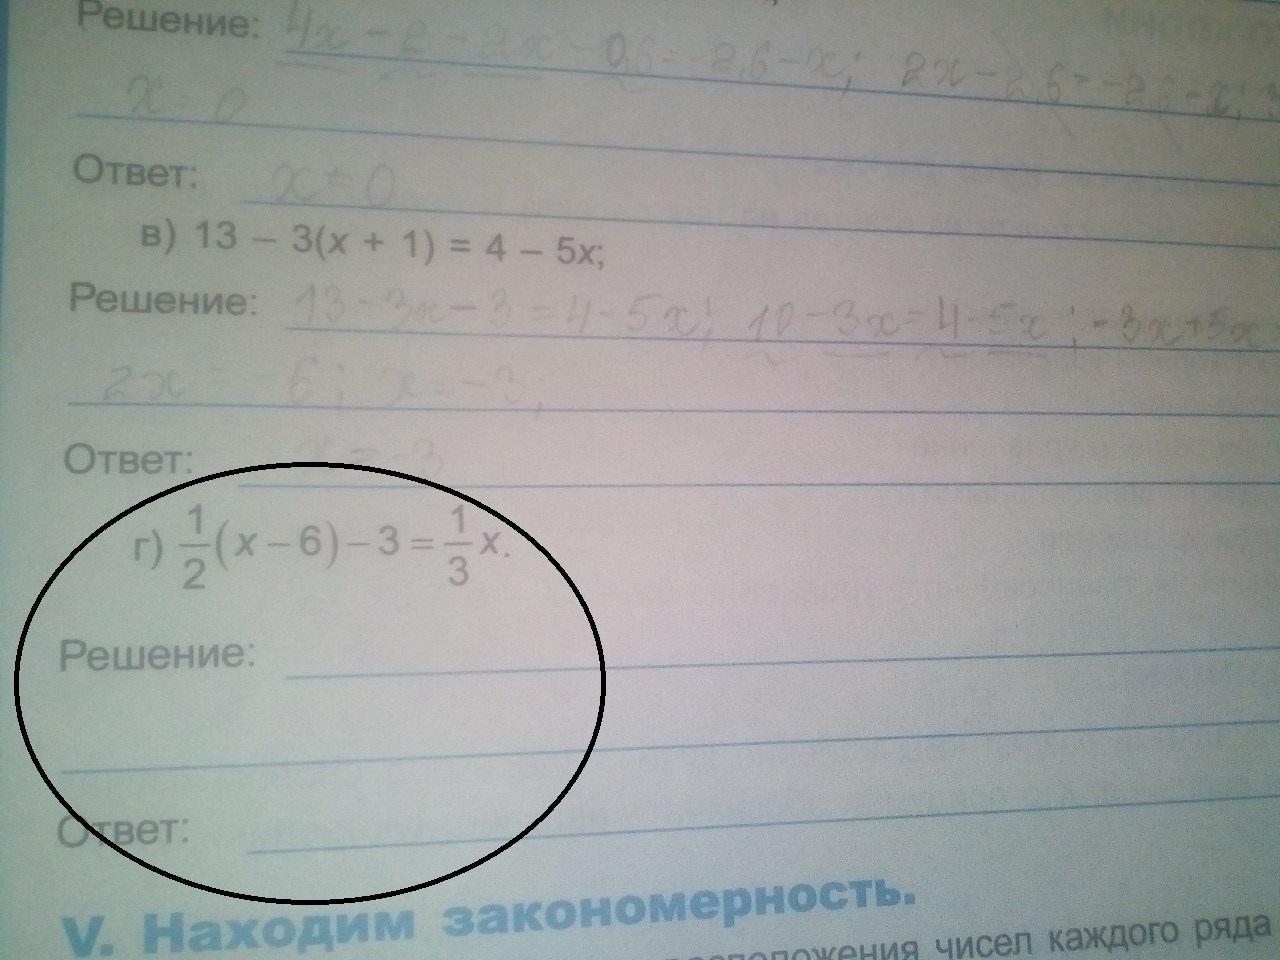 Решение: 4x - 2 - 2x - 0,6 = -2,6 - x; 2x - 2,6 = -2,6 - x;
x = 0
Ответ: x = 0
в) 13 – 3(x + 1) = 4 – 5x;
Решение: 13 - 3x - 3 = 4 - 5x; 10 - 3x = 4 - 5x; -3x + 5x
2x = -6; x = -3;
Ответ: x = -3
г) 1/2 (x – 6) – 3 = 1/3 x.
Решение:
Ответ:
V. Находим закономерность.
чисел каждого ряда